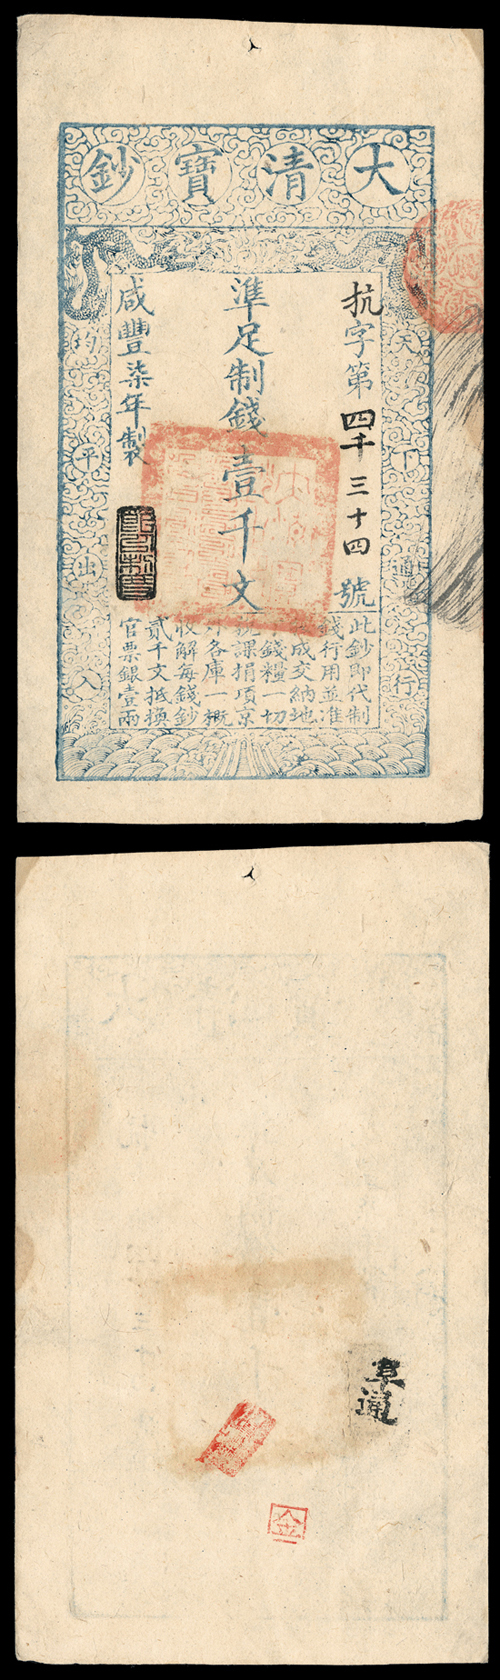 大清寶鈔
天下通行
抗字第四千三十四號
準足制錢壹千文
咸豐柒年製
均平出入
此鈔即代制
錢行用並准
成交納地
錢糧一切
課捐項京
各庫一概
收解每錢鈔
貳千文抵換
官票銀壹兩
金